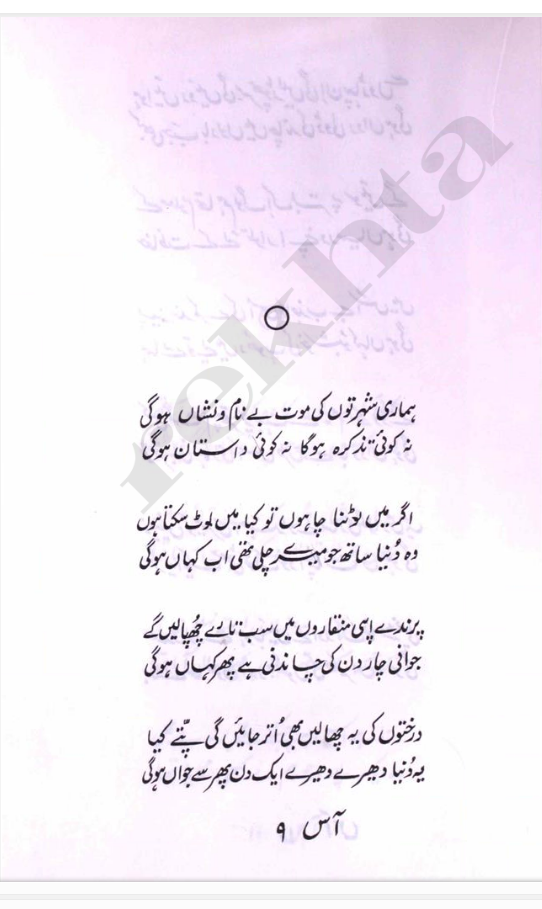 rekhta
ہماری شہرتوں کی موت بے نام و نشاں ہوگی
نہ کوئی تذکرہ ہوگا نہ کوئی داستان ہوگی
اگر میں لوٹنا چاہوں تو کیا میں لوٹ سکتا ہوں
وہ دُنیا ساتھ جو میرے چلی تھی اب کہاں ہوگی
پرندے اپنی منقاروں میں سب تارے چھُپالیں گے
جوانی چار دن کی چاندنی ہے پھر کہاں ہوگی
درختوں کی یہ چھالیں بھی اُتر جائیں گی پتّے کیا
یہ دُنیا دھیرے دھیرے ایک دن پھر سے جواں ہوگی
آس ۹